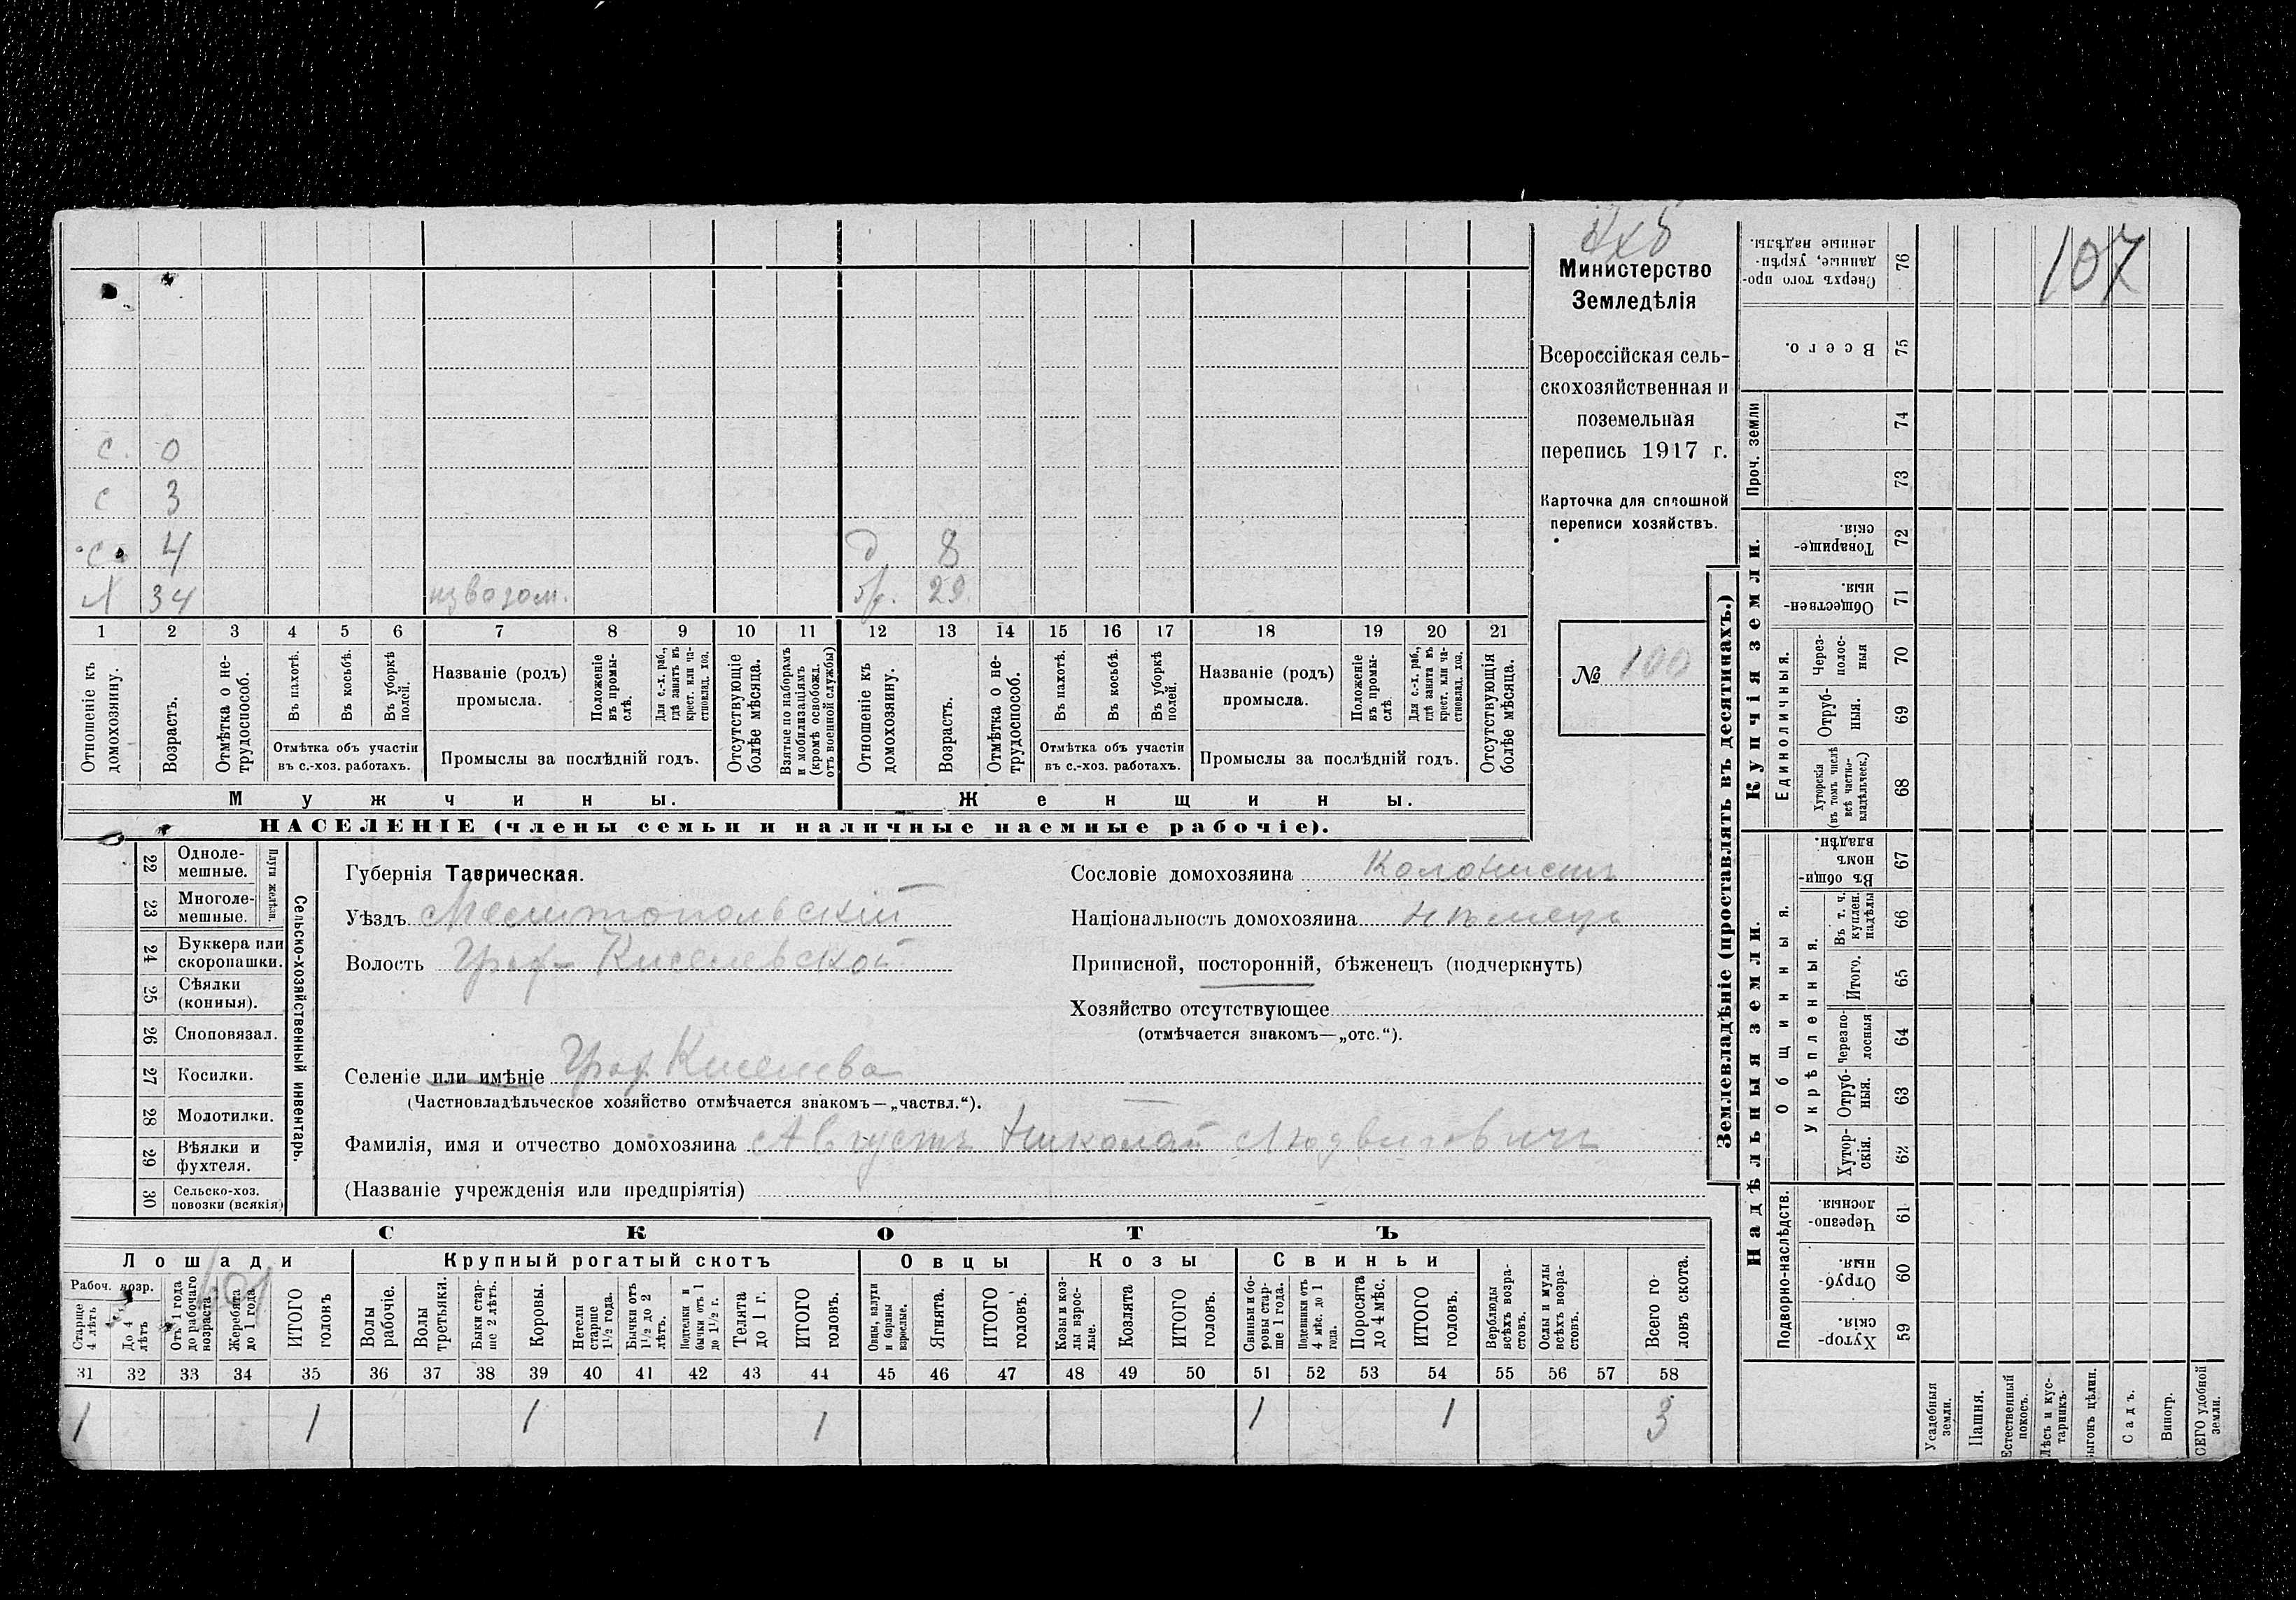 107
Министерство
Земледѣлія
Всероссійская сель-
скохозяйственная и
поземельная
перепись 1917 г.
Карточка для сплошной
переписи хозяйствъ.
№ 100
с. 0
с 3
с. 4 д 8
34 извозом. 29
1 2 3 4 5 6 7 8 9 10 11 12 13 14 15 16 17 18 19 20 21
Отношеніе къ домохозяину.
Возрастъ.
Отмѣтка о не-трудоспособ.
Въ пахотѣ.
Въ косьбѣ.
Въ уборкѣ полей.
Отмѣтка объ участіи
въ с.-хоз. работахъ.
Названіе (родъ)
промысла.
Положеніе въ промы-слѣ.
Для с.-х. раб., гдѣ занятъ въ крест. или ча-стновлад. хоз.
Промыслы за послѣдній годъ.
Отсутствующіе болѣе мѣсяца.
Взятые по наборамъ и мобилизаціямъ (кромѣ освобожд. отъ военной службы)
Отношеніе къ домохозяину.
Возрастъ.
Отмѣтка о не-трудоспособ.
Въ пахотѣ.
Въ косьбѣ.
Въ уборкѣ полей.
Отмѣтка объ участіи
въ с.-хоз. работахъ.
Названіе (родъ)
промысла.
Положеніе въ промы-слѣ.
Для с.-х. раб., гдѣ занята въ крест. или ча-стновлад. хоз.
Промыслы за послѣдній годъ.
Отсутствующія болѣе мѣсяца.
Мужчины. Женщины.
НАСЕЛЕНІЕ (члены семьи и наличные наемные рабочіе).
22 Одноле-мешные.
23 Многоле-мешные.
Плуги желѣзн.
24 Буккера или скоропашки.
25 Сѣялки (конныя).
26 Сноповязал.
27 Косилки.
28 Молотилки.
29 Вѣялки и фухтеля.
30 Сельско-хоз. повозки (всякія)
Сельско-хозяйственный инвентарь.
Губернія Таврическая.
Уѣздъ Мелитопольскій
Волость Граф-Киселевской
Селеніе или имѣніе Граф Киселева
(Частновладѣльческое хозяйство отмѣчается знакомъ—„частвл.“).
Фамилія, имя и отчество домохозяина Августъ Николай Людвиговичъ
(Названіе учрежденія или предпріятія)
Сословіе домохозяина Колонистъ
Національность домохозяина Нѣмецъ
Приписной, посторонній, бѣженецъ (подчеркнуть)
Хозяйство отсутствующее
(отмѣчается знакомъ—„отс.“).
СКОТЪ
Лошади Крупный рогатый скотъ Овцы Козы Свиньи
Рабоч. возр.
Старше 4 лѣтъ
До 4 лѣтъ
Отъ 1 года до рабочаго возраста
Жеребята до 1 года
ИТОГО головъ
Волы рабочіе.
Волы третьяки.
Быки стар-ше 2 лѣтъ.
Коровы.
Нетели старше 1½ года.
Бычки отъ 1½ до 2 лѣтъ.
Подтелки и бычки отъ 1 до 1½ г.
Телята до 1 г.
ИТОГО головъ.
Овцы, валухи и бараны взрослые.
Ягнята.
ИТОГО головъ.
Козы и коз-лы взрос-лые.
Козлята
ИТОГО головъ.
Свиньи и бо-ровы стар-ше 1 года.
Подсвинки отъ 4 мѣс. до 1 года.
Поросята до 4 мѣс.
ИТОГО головъ.
Верблюды всѣхъ возра-стовъ.
Ослы и мулы всѣхъ возра-стовъ.
Всего го-ловъ скота.
31 32 33 34 35 36 37 38 39 40 41 42 43 44 45 46 47 48 49 50 51 52 53 54 55 56 57 58
1 1 1 1 1 1 3
Землевладѣніе (проставлять въ десятинахъ.)
Купчія земли.
Надѣльныя земли.
Проч. земли
Единоличныя.
Общинныя.
Укрѣпленныя.
Подворно-наслѣдств.
76 Сверхъ того про-данные, укрѣп-ленные надѣлы.
75 Всего.
74
73
72 Товарище-скія.
71 Обществен-ныя.
70 Через-полос-ныя
69 Отруб-ныя.
68 Хуторскія (въ томъ числѣ всѣ частно-владѣльческ.)
67 Въ общин-номъ владѣн.
66 Въ т. ч. куплен. надѣлы
65 Итого.
64 Черезпо-лосныя
63 Отруб-ныя.
62 Хутор-скія.
61 Черезпо-лосныя.
60 Отруб-ныя.
59 Хутор-скія.
Усадебныя земли.
Пашня.
Естественный покосъ.
Лѣсъ и кус-тарникъ.
ыгонъ цѣлин.
Садъ.
Виногр.
СЕГО удобной земли.